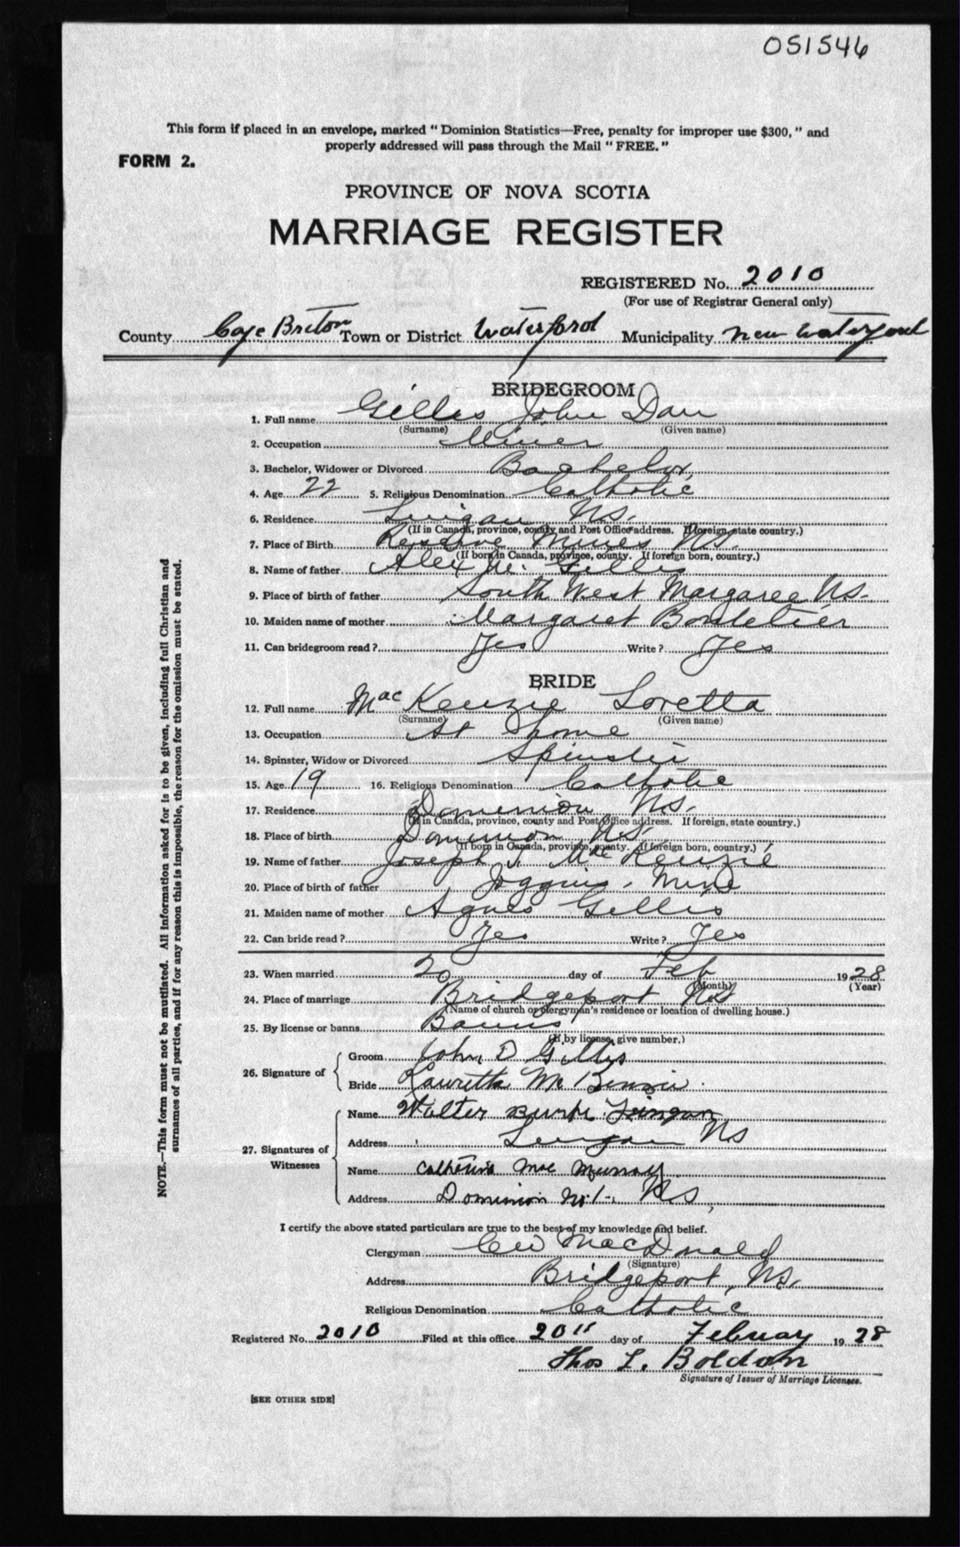 051546
This form if placed in an envelope, marked "Dominion Statistics—Free, penalty for improper use $300," and
properly addressed will pass through the Mail "FREE."
FORM 2.
PROVINCE OF NOVA SCOTIA
MARRIAGE REGISTER
REGISTERED No. 2010
(For use of Registrar General only)
County Cape Breton Town or District Waterford Municipality New Waterford
BRIDEGROOM
1. Full name Gillis John Dan
(Surname) (Given name)
2. Occupation Miner
3. Bachelor, Widower or Divorced Bachelor
4. Age 22 5. Religious Denomination Catholic
6. Residence Lingan NS.
(If in Canada, province, county and Post Office address. If foreign, state country.)
7. Place of Birth Reserve Mines NS.
(If born in Canada, province, county. If foreign born, country.)
8. Name of father Alex Gillis
9. Place of birth of father South West Margaree NS.
10. Maiden name of mother Margaret
11. Can bridegroom read? Yes Write? Yes
BRIDE
12. Full name MacKenzie Loretta
(Surname) (Given name)
13. Occupation At home
14. Spinster, Widow or Divorced Spinster
15. Age 19 16. Religious Denomination Catholic
17. Residence Dominion NS.
(If in Canada, province, county and Post Office address. If foreign, state country.)
18. Place of birth Dominion NS.
(If born in Canada, province, county. If foreign born, country.)
19. Name of father Joseph MacKenzie
20. Place of birth of father Joggins, Mine
21. Maiden name of mother Agnes Gillis
22. Can bride read? Yes Write? Yes
23. When married 20 day of Feb 1928
(Month) (Year)
24. Place of marriage Bridgeport NS
(Name of church or clergyman's residence or location of dwelling house.)
25. By license or banns Banns
(If by license, give number.)
26. Signature of
Groom John D Gillis
Bride Lauretta Mc Kenzie
27. Signatures of Witnesses
Name Walter Burke Lingan
Address Lingan NS
Name Catherine Mac Murray
Address Dominion No. 1 NS
I certify the above stated particulars are true to the best of my knowledge and belief.
Clergyman MacDonald
(Signature)
Address Bridgeport, NS.
Religious Denomination Catholic
Registered No. 2010 Filed at this office 20 day of Februay 1928
Thos L. Boldon
Signature of Issuer of Marriage Licenses.
[SEE OTHER SIDE]
NOTE.—This form must not be mutilated. All information asked for is to be given, including full Christian and
surnames of all parties, and if for any reason this is impossible, the reason for the omission must be stated.